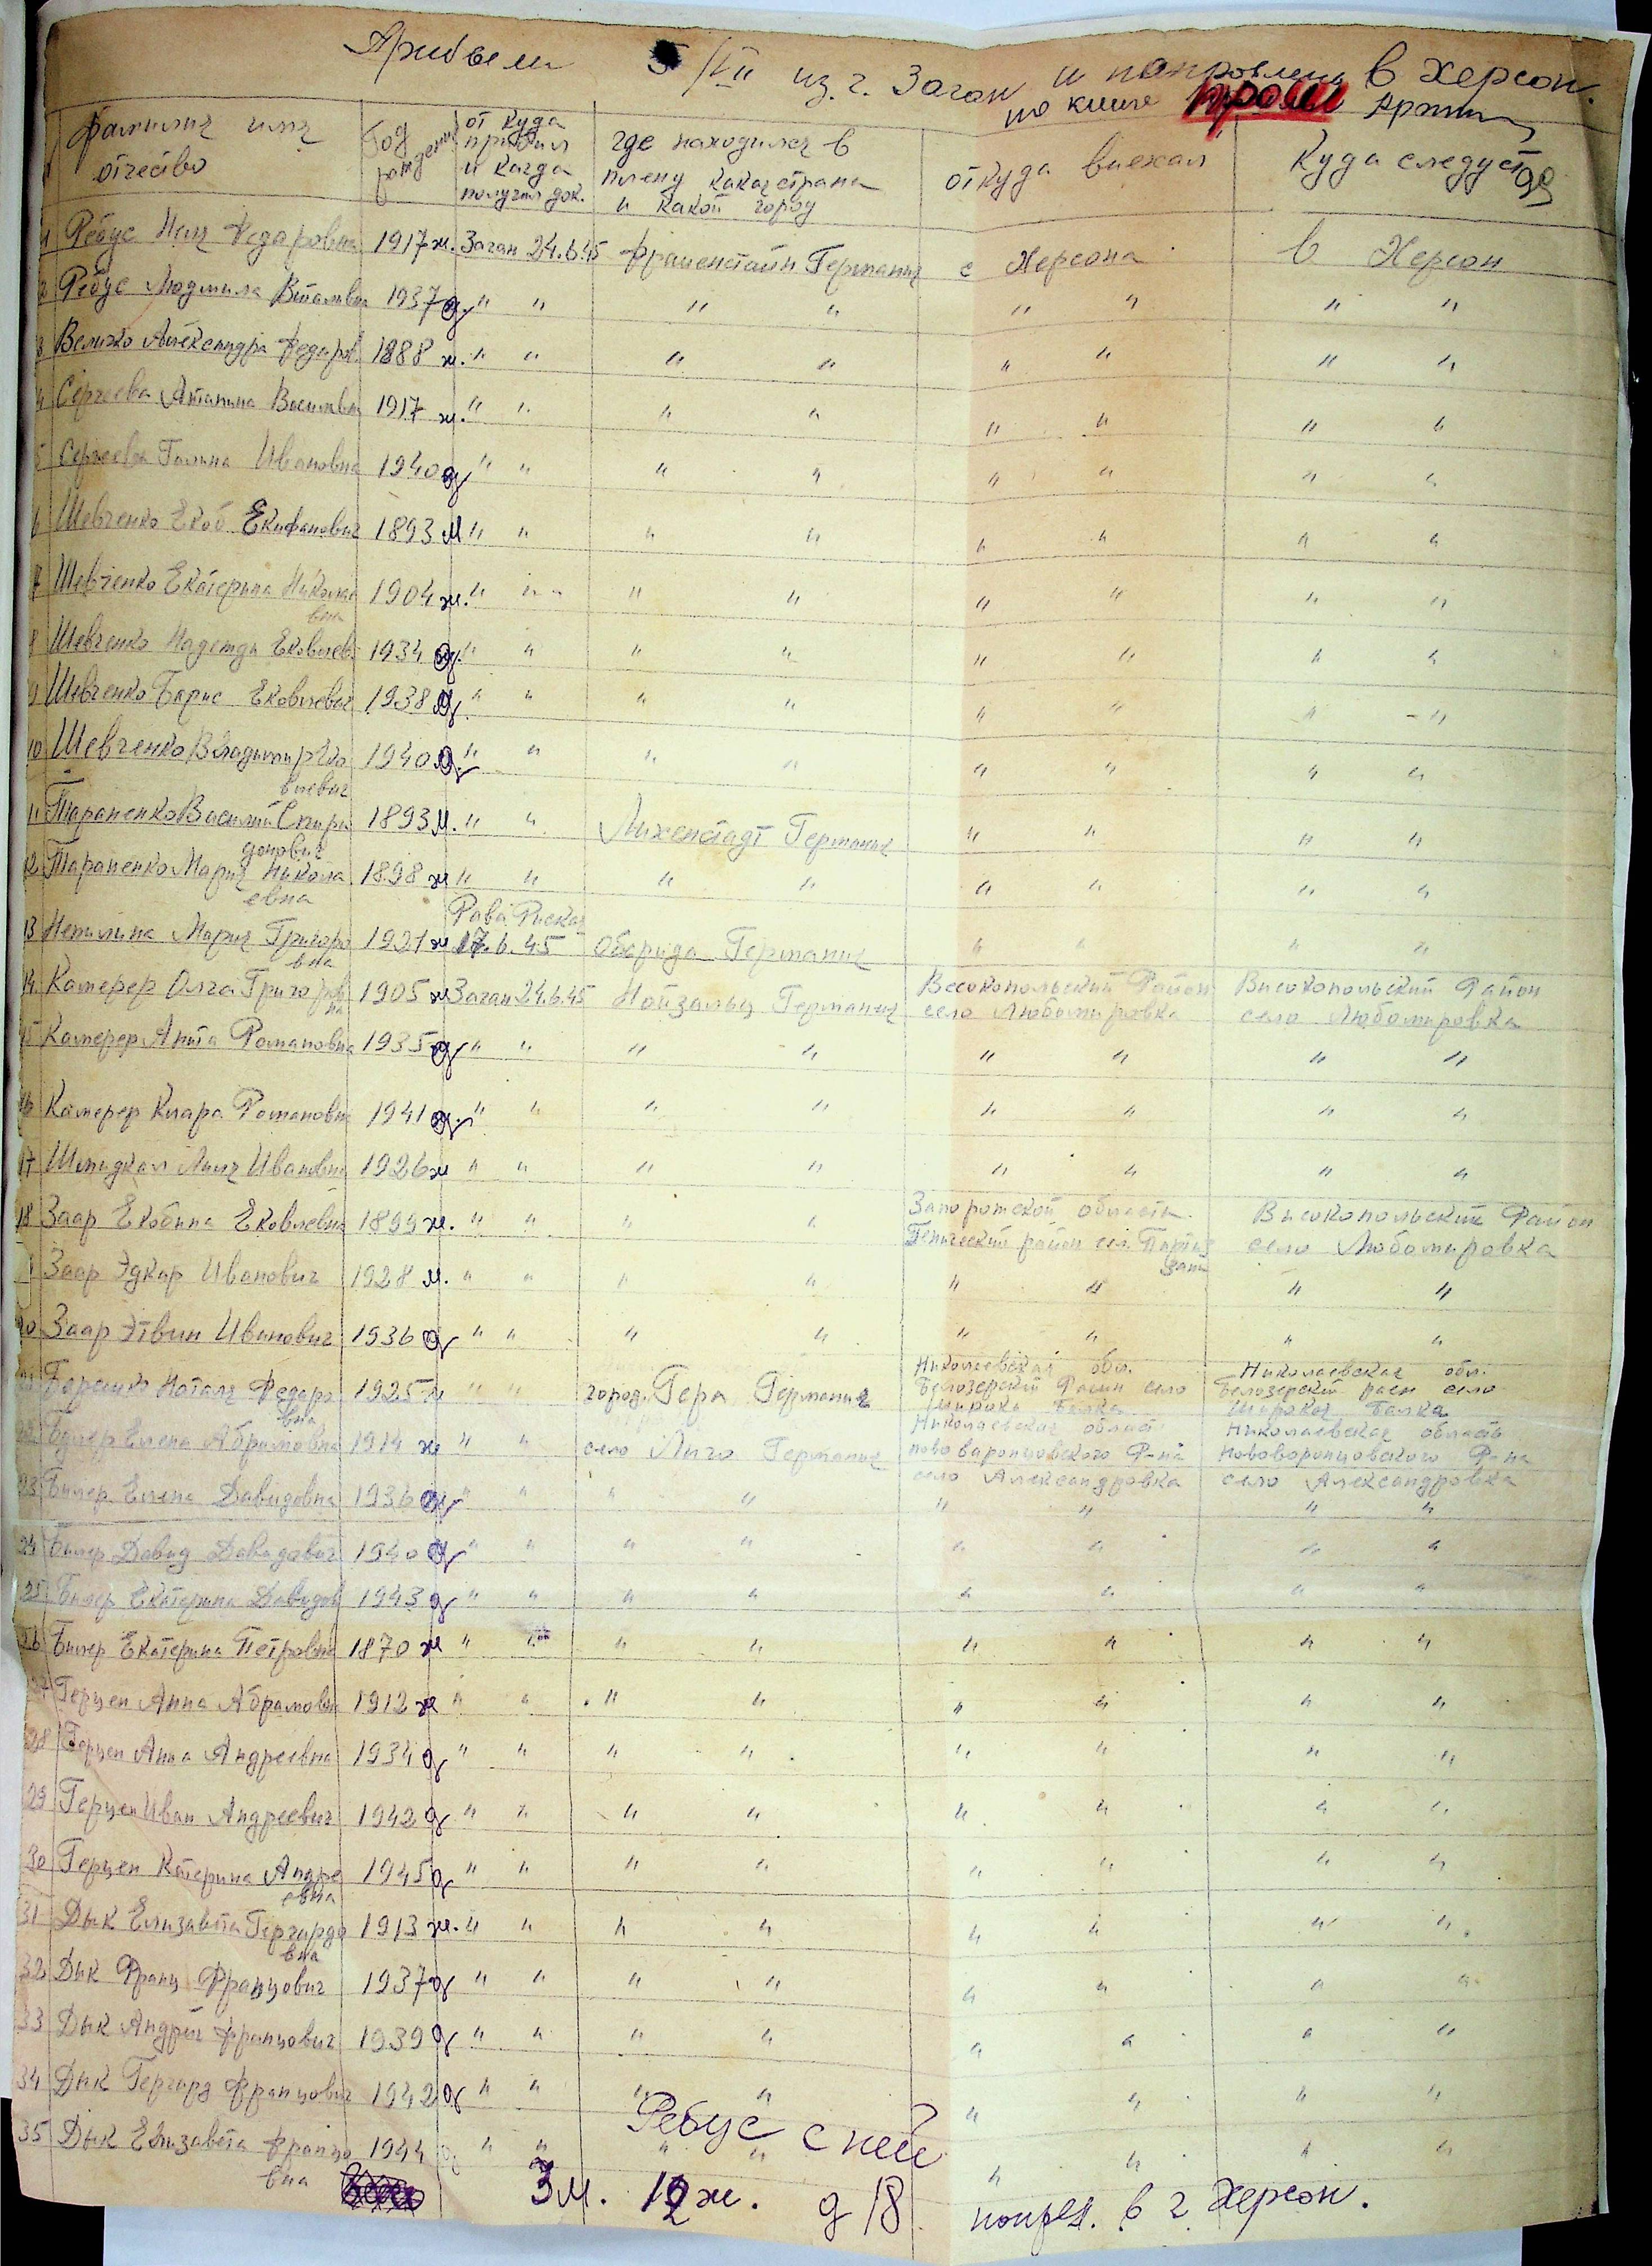 Прибыли 5/VII из г. Заган и направлены в Херсон.
по книге Арти
фамилия имя отчество
Год рождения
от куда прибыл и когда получил док.
где находилса в плену какая страна и какой город
откуда виехал
Куда следует
1 Ребус Нил Федаровна 1917 ж. Заган 24.6.45 Франенстайн Германия с Херсона в Херсон
2 Ребус Людмила Витальевна 1937 д. " " " " " " " "
3 Велико Александра Федаров 1888 ж. " " " " " " " "
4 Сергеева Антанина Васильевна 1917 ж. " " " " " " " "
5 Сергеева Галина Ивановна 1940 д " " " " " " " "
6 Шевченко Екоб Екифанович 1893 М " " " " " " " "
7 Шевченко Екатерина Николаевна 1904 ж. " " " " " " " "
8 Шевченко Надежда Ековлев 1934 д. " " " " " " " "
9 Шевченко Барис Ековлевич 1938 д. " " " " " " " "
10 Шевченко Владимир Еко
влевич 1940 д. " " " " " " " "
11 Тараненко Василий Спири
донович 1893 М. " " Лихенстадт Германия " " " "
12 Тараненко Мария Никола
евна 1898 ж " " " " " " " "
Рава Руская
13 Мария Григоро
вна 1921 ж 17.6.45 Германия " " " "
14 Камерер Олга Григоров
на 1905 ж Заган 24.6.45 Нойзальц Германия Високопольский Район село Любамировка Високопольский Район село Любомировка
15 Камерер Анита Романовна 1935 д " " " " " " " "
16 Камерер Клара Романовна 1941 д. " " " " " " " "
17 Шмидкал Лиля Ивановна 1926 ж " " " " " " " "
18 Заар Екобина Ековлевна 1899 ж. " " " " Запорожской области Генический район сел. Партизани Високопольский Район село Любомировка
19 Заар Эдкар Иванович 1928 м. " " " " " " " "
20 Заар Этвин Иванович 1936 д " " " " " " " "
21 Натала Федаро
вна 1925 ж " " город Гера Германия Николаевская обл. Белозерский Раен село Широка Балка Николаевская обл. Белозерский раен село Широкая Балка
22 Елена Абрамовна 1914 ж " " село Лиго Германия Николаевская област нововаронцовского Р-на село Александровка Николаевская область Нововоронцовского Р-на село Александровка
23 Билер Елена Давидовна 1936 д " " " " " " " "
24 Билер Давид Давидович 1940 д " " " " " " " "
25 Билер Екатерина Давидов 1943 д " " " " " " " "
26 Билер Екатерина Петровна 1870 ж " " " " " " " "
27 Герцен Анна Абрамовна 1912 ж " " " " " " " "
28 Герцен Анна Андреевна 1934 д " " " " " " " "
29 Герцен Иван Андреевич 1942 д " " " " " " " "
30 Герцен Катерина Андре
евна 1945 д " " " " " " " "
31 Дык Елизавета Гергардо
вна 1913 ж. " " " " " " " "
32 Дик Франц Францович 1937 д " " " " " " " "
33 Дык Андрей Францович 1939 д " " " " " " " "
34 Дик Гергард Францович 1942 д " " " " " " " "
35 Дык Елизавета Францо
вна 1944 д " " " " " " " "
Ребус с ней
3 м. 12 ж. д 18 напрвл. в г Херсон.